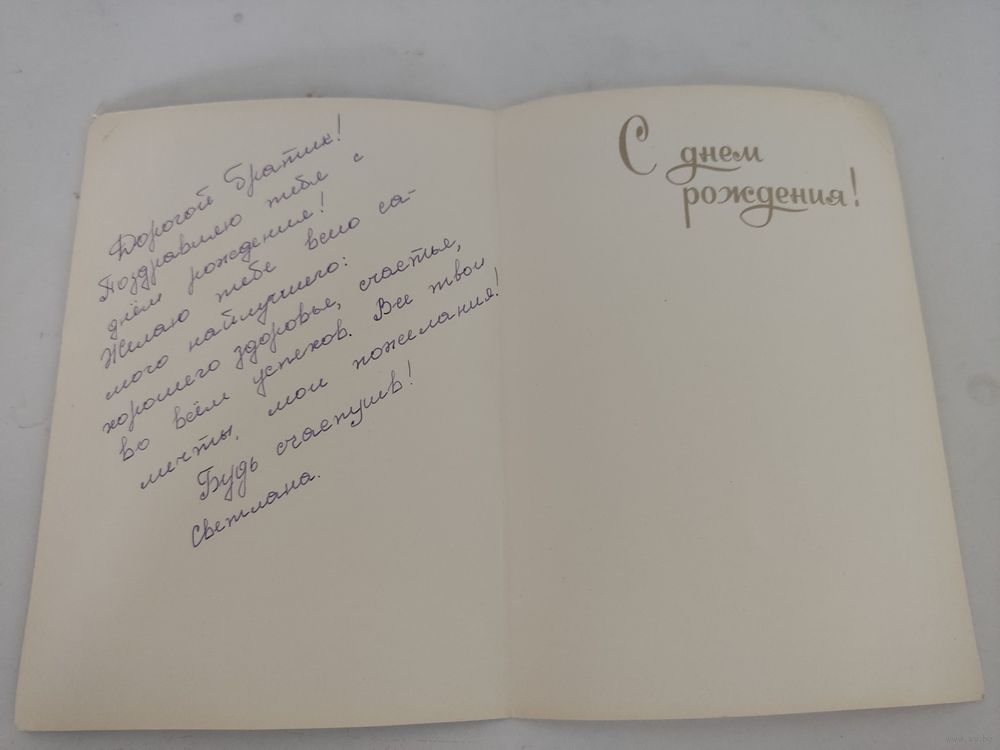 Дорогой братик!
Поздравляю тебя с
днём рождения!
Желаю тебе всего са-
мого наилучшего:
хорошего здоровья, счастья,
во всём успехов. Все твои
мечты, мои пожелания!
Будь счастлив!
Светлана.
С днем
рождения!